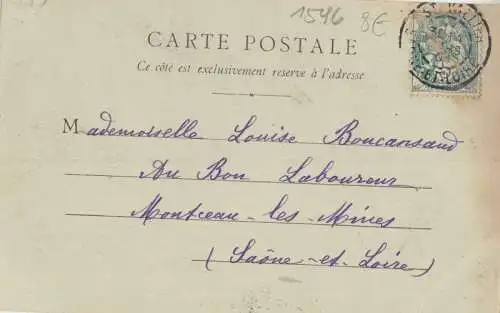 1546 8€
CARTE POSTALE
Ce côté est exclusivement reservé à l'adresse
Mademoiselle Louise Boucansaud
Au Bon Laboureur
Montceau-les-Mines
(Saône-et-Loire)